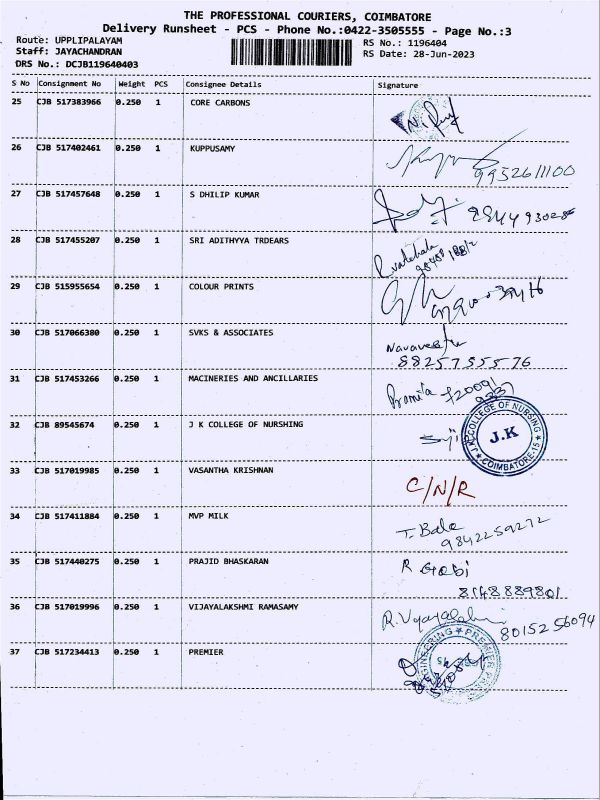 THE PROFESSIONAL COURIERS, COIMBATORE
Delivery Runsheet - PCS - Phone No.:0422-3505555 - Page No.:3
Route: UPPLIPALAYAM
Staff: JAYACHANDRAN
DRS No.: DCJB119640403
RS No.: 1196404
RS Date: 28-Jun-2023
S No Consignment No Weight PCS Consignee Details Signature
25 CJB 517383966 0.250 1 CORE CARBONS
26 CJB 517402461 0.250 1 KUPPUSAMY
9952611100
27 CJB 517457648 0.250 1 S DHILIP KUMAR
28 CJB 517455207 0.250 1 SRI ADITHYYA TRDEARS
29 CJB 515955654 0.250 1 COLOUR PRINTS
30 CJB 517066380 0.250 1 SVKS & ASSOCIATES
88257 55576
31 CJB 517453266 0.250 1 MACINERIES AND ANCILLARIES
Pramila
32 CJB 89545674 0.250 1 J K COLLEGE OF NURSHING
J.K COLLEGE OF NURSING
J.K
COIMBATORE-15
33 CJB 517019985 0.250 1 VASANTHA KRISHNAN
C/N/R
34 CJB 517411884 0.250 1 MVP MILK
T. Bala
9842259272
35 CJB 517440275 0.250 1 PRAJID BHASKARAN
R Gobi
8148889801
36 CJB 517019996 0.250 1 VIJAYALAKSHMI RAMASAMY
8015256094
37 CJB 517234413 0.250 1 PREMIER